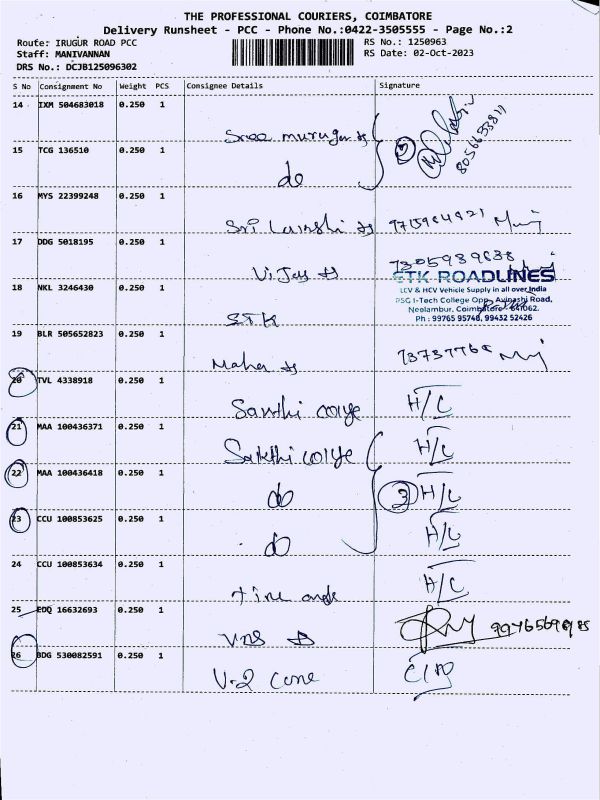 THE PROFESSIONAL COURIERS, COIMBATORE
Delivery Runsheet - PCC - Phone No.:0422-3505555 - Page No.:2
Route: IRUGUR ROAD PCC
RS No.: 1250963
Staff: MANIVANNAN
RS Date: 02-Oct-2023
DRS No.: DCJB125096302
S No Consignment No Weight PCS Consignee Details Signature
14 IXM 504683018 0.250 1
Sree murugan
15 TCG 136510 0.250 1
do
16 MYS 22399248 0.250 1
Sri
17 DDG 5018195 0.250 1
Vijay
STK ROADLINES
LCV & HCV Vehicle Supply in all over India
PSG I-Tech College Opp., Avinashi Road,
Neelambur, Coimbatore - 641062.
Ph : 99765 95748, 99432 52426
18 NKL 3246430 0.250 1
STK
19 BLR 505652823 0.250 1
Maha
20 TVL 4338918 0.250 1
H/C
21 MAA 100436371 0.250 1
H/C
22 MAA 100436418 0.250 1
do 3 H/C
23 CCU 100853625 0.250 1
do H/C
24 CCU 100853634 0.250 1
H/C
25 EDQ 16632693 0.250 1
VNS
26 BDG 530082591 0.250 1
V-2 Cone